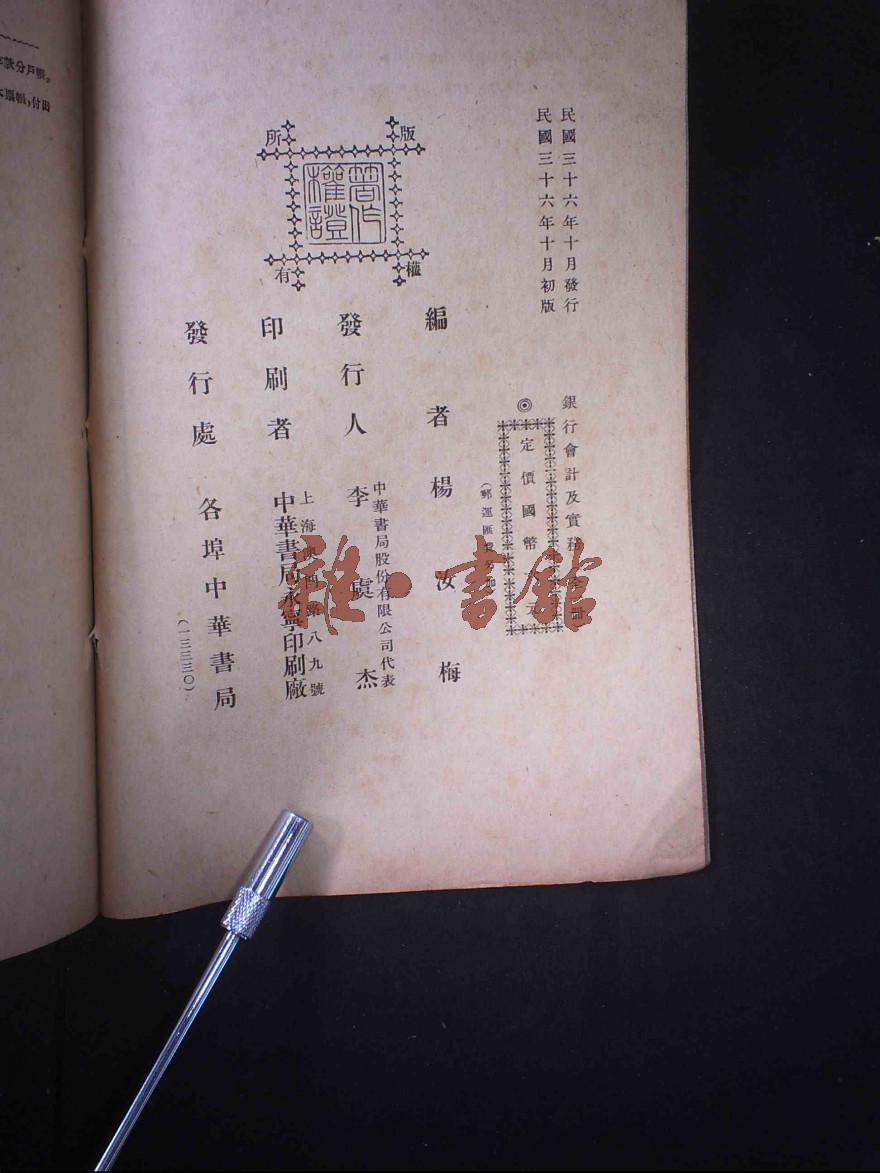 民國三十六年十月發行
民國三十六年十月初版
銀行會計及實務全冊
◎定價國幣 元
(郵運匯費另加)
版權所有
著作權證
編者 楊汝梅
發行人 李虞杰
中華書局股份有限公司代表
印刷者 中華書局永寧印刷廠
上海澳門路八九號
發行處 各埠中華書局
(一三三三〇)
雜·書館
款分戶帳。
票帳，付出